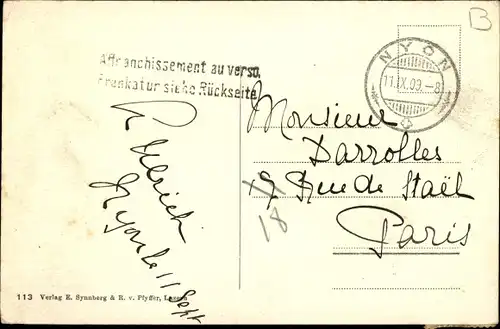 B
Affranchissement au verso.
Frankatur siehe Rückseite.
NYON
11.IX.09.-8
Monsieur
Darrolles
17 Rue de Staël
18
Paris
Nyon le 11 Sept
113 Verlag E. Synnberg & R. v. Pfyffer, Luzern